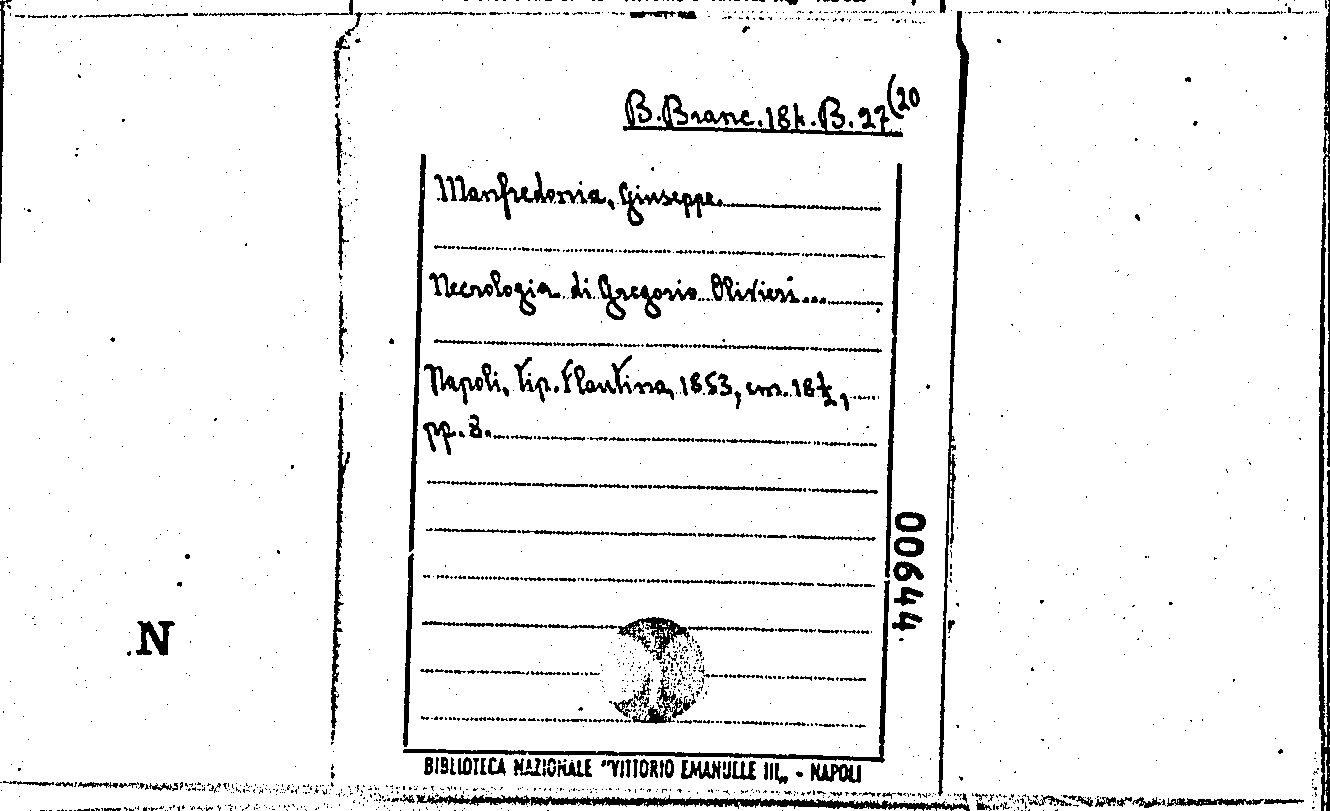 B. Branc. 184. B. 27 (20
Manfredonia, Giuseppe.
Necrologia di Gregorio Olivieri...
Napoli, tip. Flautina, 1853, cm. 18½,
pp. 8.
00644
N
BIBLIOTECA NAZIONALE "VITTORIO EMANUELE III„ - NAPOLI